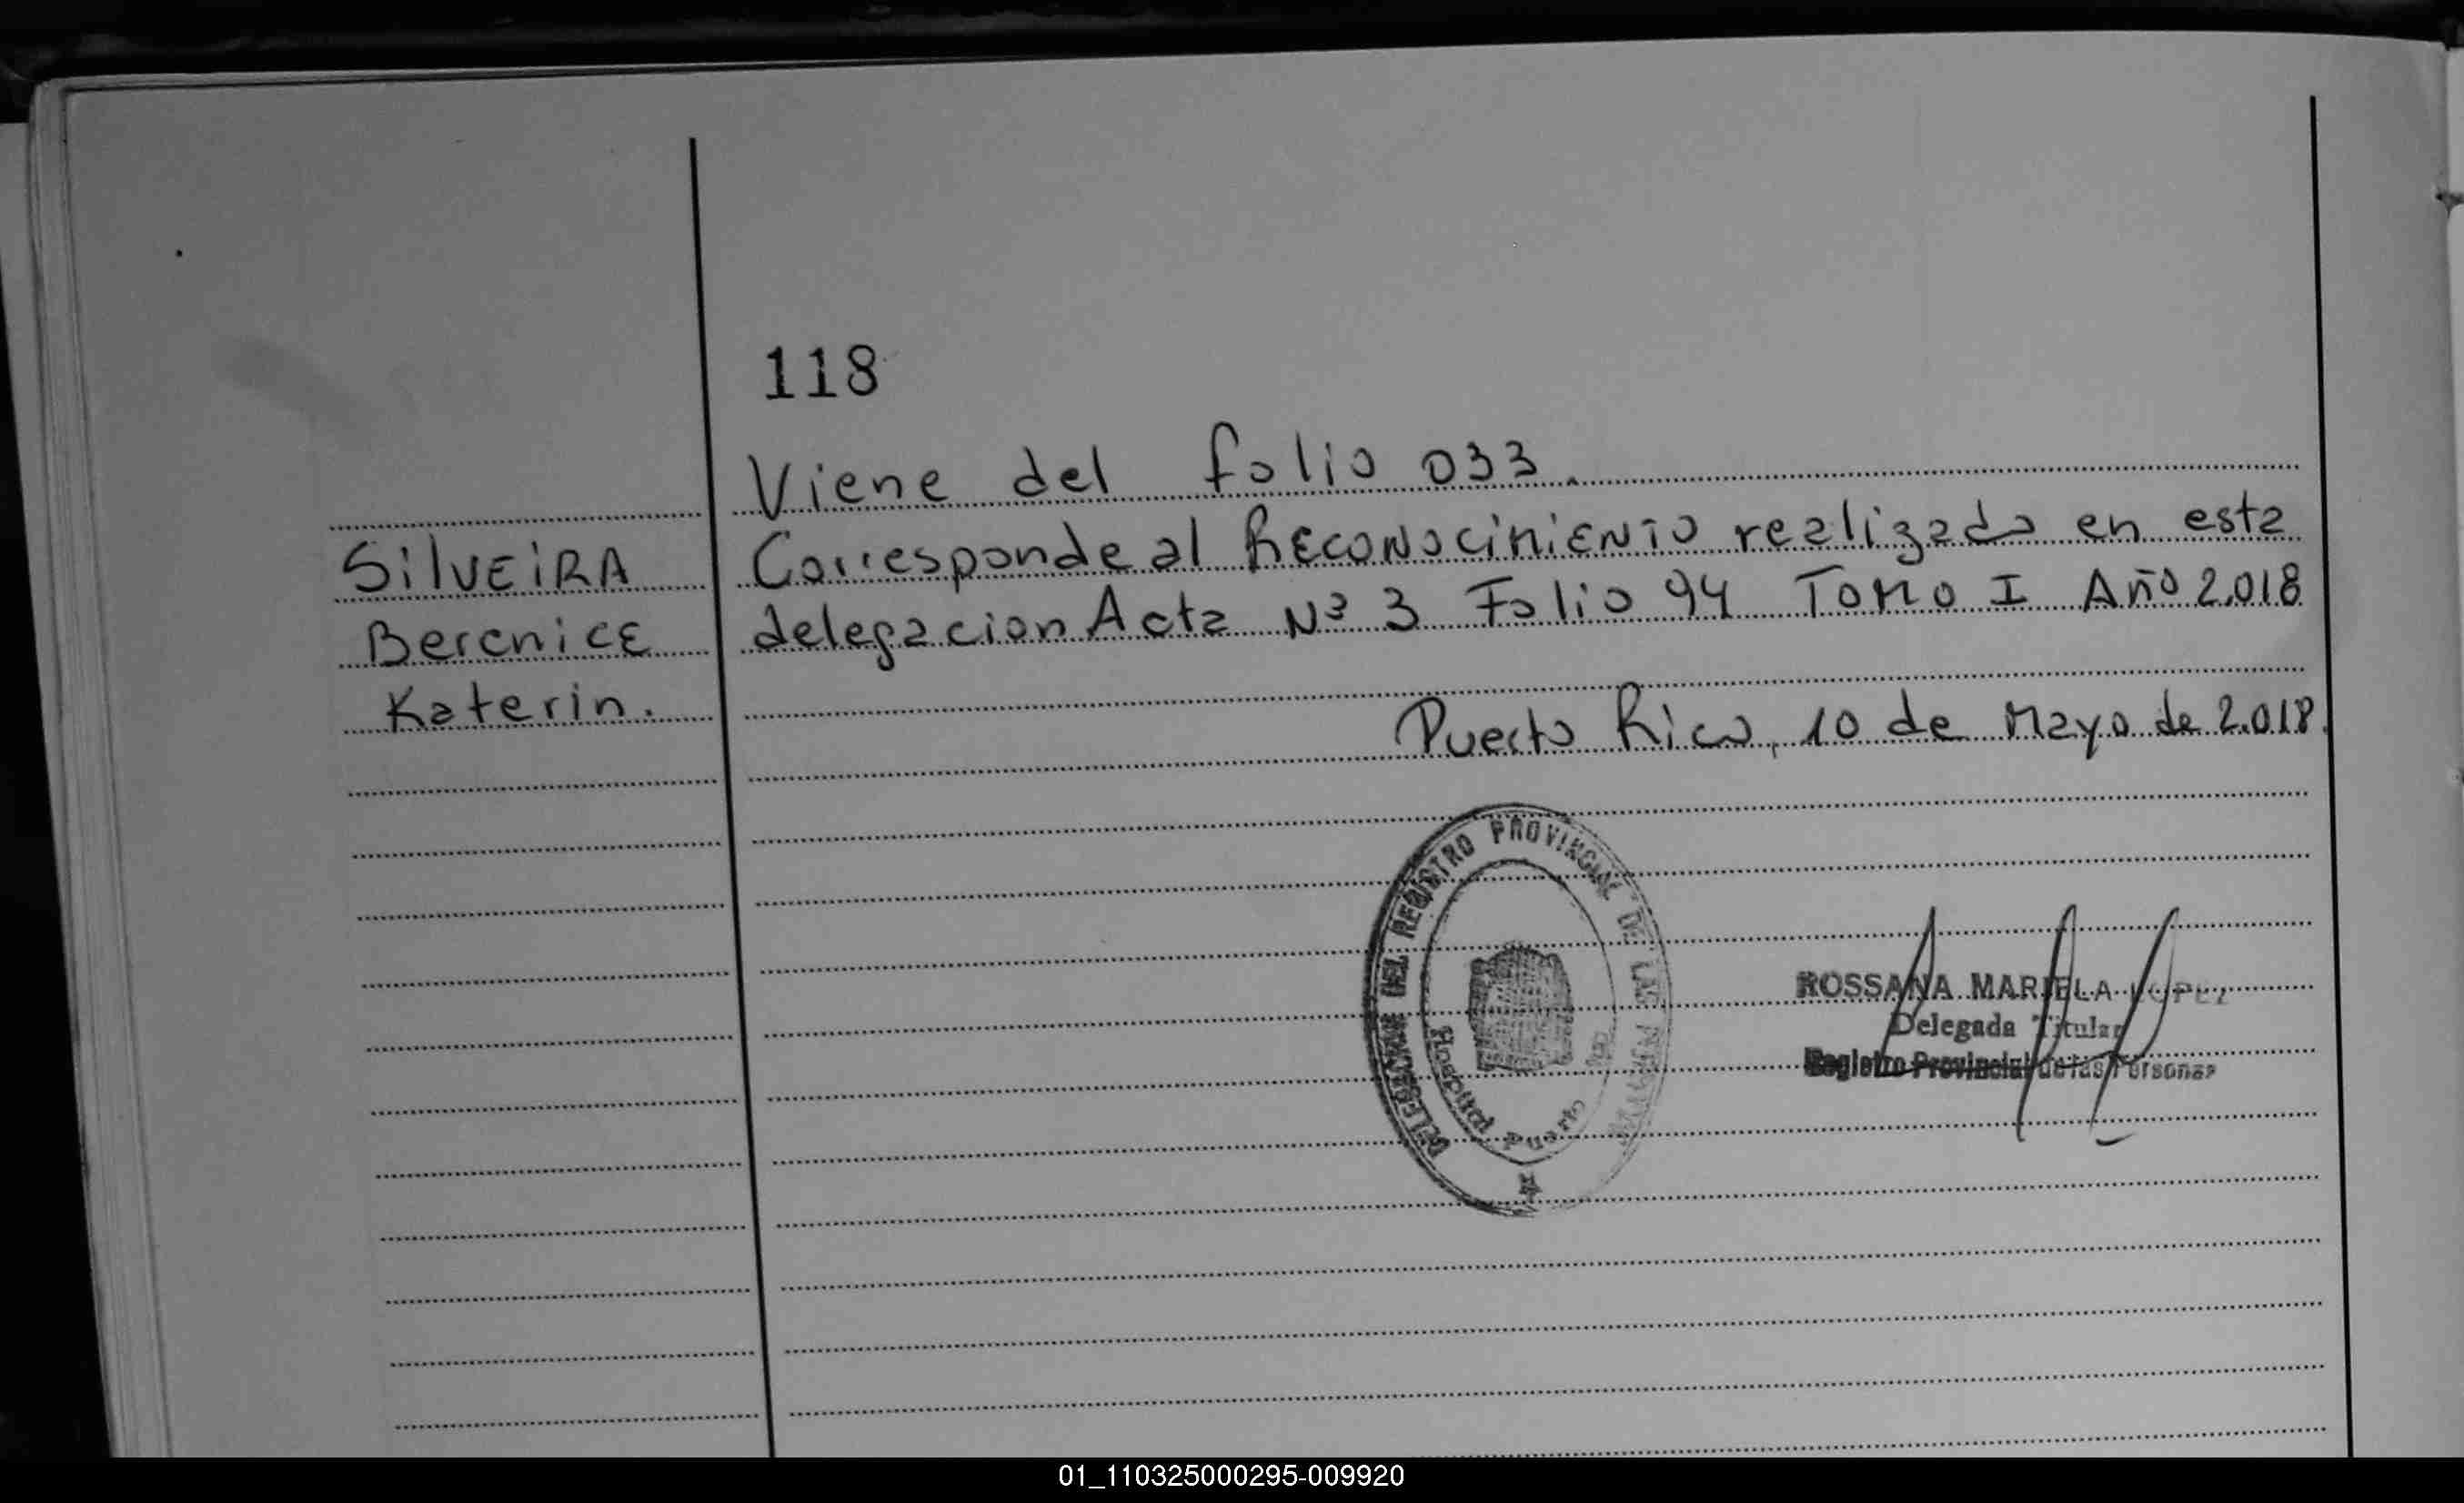 118
Viene del folio 033.
SilVEiRA
Corresponde al RECONOCiMiENTO realizado en esta
Berenice
delegacion Acta Nº 3 Folio 94 TOMO I Año 2.018
Katerin.
Puerto Rico, 10 de Mayo de 2.018.
DELEGACION DEL REGISTRO PROVINCIAL DE LAS
Hospital Puerto
ROSSANA MARIELA LOPEZ
Delegada Titular
Registro Provincial de las Personas
01_110325000295-009920